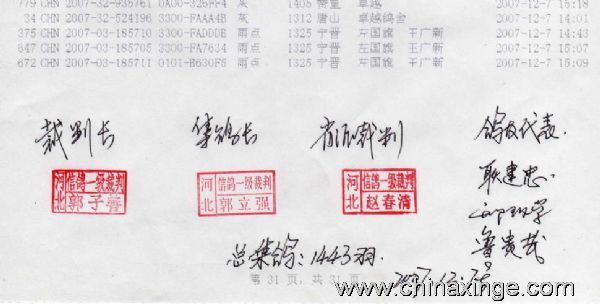 779 CHN 2007-32-935761 0A00-326FF4 灰 1405 卓越 2007-12-7 15:18
34 CHN 2007-32-524196 3300-FAAA4B 灰 1312 唐山 卓越鸽舍 2007-12-7 14:01
375 CHN 2007-03-185710 3300-FADDDE 雨点 1325 宁晋 左国旗 王广新 2007-12-7 14:43
647 CHN 2007-03-185705 3300-FA7634 雨点 1325 宁晋 左国旗 王广新 2007-12-7 15:07
672 CHN 2007-03-185711 0101-B630F5 雨点 1325 宁晋 左国旗 王广新 2007-12-7 15:09
裁判长 集鸽长 省派裁判 鸽友代表
河北 信鸽一级裁判 郭子善
河北 信鸽一级裁判 郭立强
河北 信鸽一级裁判 赵春清
耿建忠
鲁贵哉
总集鸽:1443羽
第 31 页, 共 31 页
www.chinaxinge.com